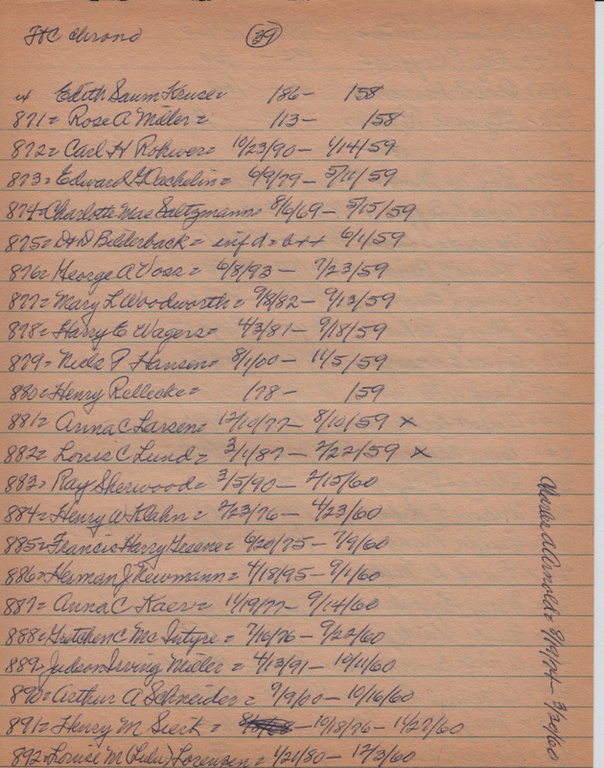 THC chrono 39
x Edith Saum Kruse = 186- 158
871= Rose A Miller = 113- 158
872= Carl H Rohwer= 10/23/90- 1/14/59
873= Edward G Oechelin= 6/9/79- 5/11/59
874=Charlotte Mae Saltzmann 8/6/69- 5/15/59
875= D+D Bilderback = inf d = b++ 6/1/59
876= George A Voss = 6/8/93- 7/23/59
877= Mary L Woodworth = 9/8/82- 9/13/59
878= Harry E Wagers= 4/3/81- 9/18/59
879= Niels P Hansen= 8/1/00- 11/5/59
880=Henry Rellecke= 178- 159
881= Anna C Larsen= 12/10/77- 8/10/59 x
882= Louis C Lund = 3/1/87- 2/22/59 x
883= Ray Sherwood= 3/5/90- 2/15/60
884= Henry W Klahn = 2/23/76- 4/23/60
885=Francis Harry Greene= 6/20/75- 7/9/60
886= Herman J Newmann = 4/18/95- 9/1/60
887= Anna C Kaer= 11/19/77- 9/14/60
888=Gretchen C McIntyre = 7/16/76- 9/22/60
889=Judson Irving Miller = 4/13/91- 10/11/60
890= Arthur A Schneider = 9/9/00- 10/16/60
891= Henry M Sierk = 10/18/76- 11/27/60
892=Louise M (Lulu) Lorensen = 1/21/80- 12/3/60
Charles A Arnold= 9/19/74- 3/20/60